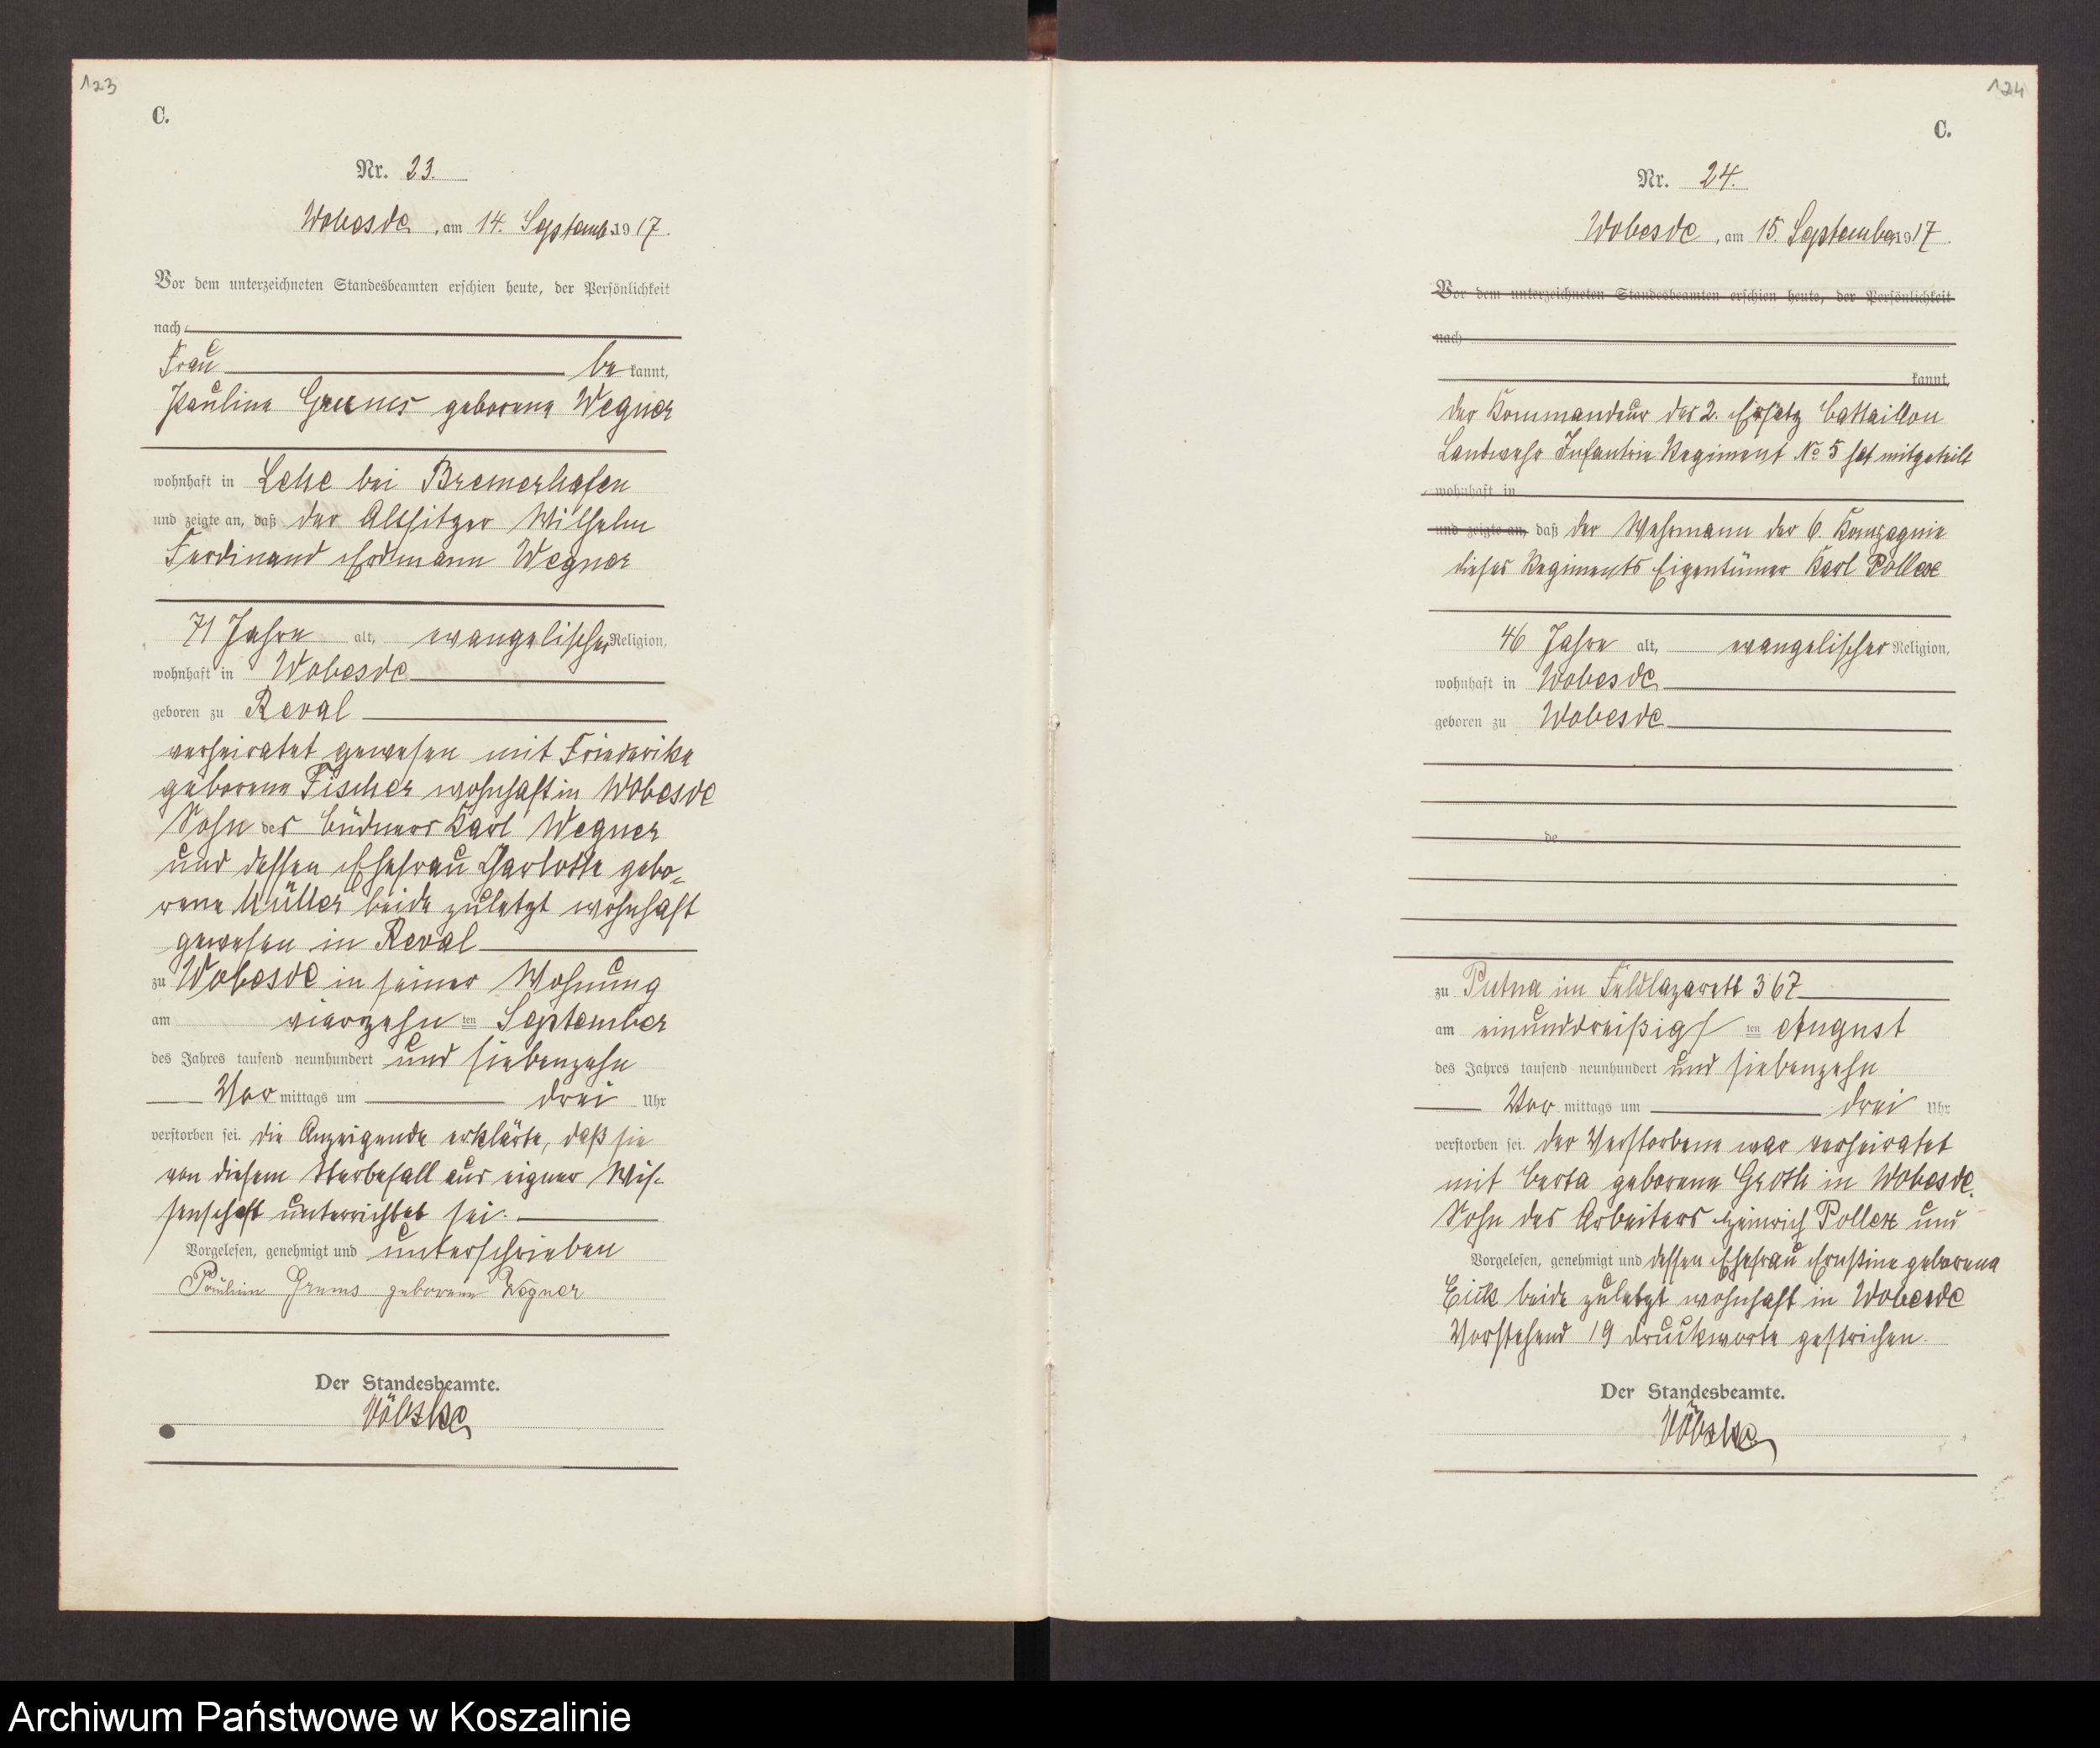 123
C.
Nr. 23.
Wobesde, am 14. Septemb. 1917.
Vor dem unterzeichneten Standesbeamten erschien heute, der Persönlichkeit
nach
Frau be kannt,
Pauline Grums geborene Wegner
wohnhaft in Lehe bei Bremerhafen
und zeigte an, daß der Altsitzer Wilhelm
Ferdinand Erdmann Wegner
71 Jahre alt, evangelischer Religion,
wohnhaft in Wobesde
geboren zu Reval
verheiratet gewesen mit Friederike
geborene Fischer wohnhaft in Wobesde
Sohn des Büdners Karl Wegner
und dessen Ehefrau Charlotte gebo-
rene Müller beide zuletzt wohnhaft
gewesen in Reval
zu Wobesde in seiner Wohnung
am vierzehn ten September
des Jahres tausend neunhundert und siebenzehn
Vor mittags um drei Uhr
verstorben sei. die Anzeigende erklärte, daß sie
von diesem Sterbefall aus eigner Wis-
senschaft unterrichtet sei.
Vorgelesen, genehmigt und unterschrieben
Pauline Grums geborene Wegner
Der Standesbeamte.
Völzke
124
C.
Nr. 24.
Wobesde, am 15. September 1917.
Vor dem unterzeichneten Standesbeamten erschien heute, der Persönlichkeit
nach
kannt,
der Kommandeur des 2. Ersatz Battaillon
Landwehr Infantrie Regiment No 5 hat mitgeteilt
wohnhaft in
und zeigte an, daß der Wehrmann der 6. Kompagnie
dieses Regiments Eigentümer Karl Pollex
46 Jahre alt, evangelischer Religion,
wohnhaft in Wobesde
geboren zu Wobesde
de
zu Putna im Feldlazarett 367
am einunddreißigs ten August
des Jahres tausend neunhundert und siebenzehn
Vor mittags um drei Uhr
verstorben sei. der Verstorbene war verheiratet
mit Berta geborene Groth in Wobesde.
Sohn des Arbeiters Heinrich Pollex und
Vorgelesen, genehmigt und dessen Ehefrau Ernstine geborene
Eick beide zuletzt wohnhaft in Wobesde
Vorstehend 19 Druckworte gestrichen.
Der Standesbeamte.
Völzke
Archiwum Państwowe w Koszalinie